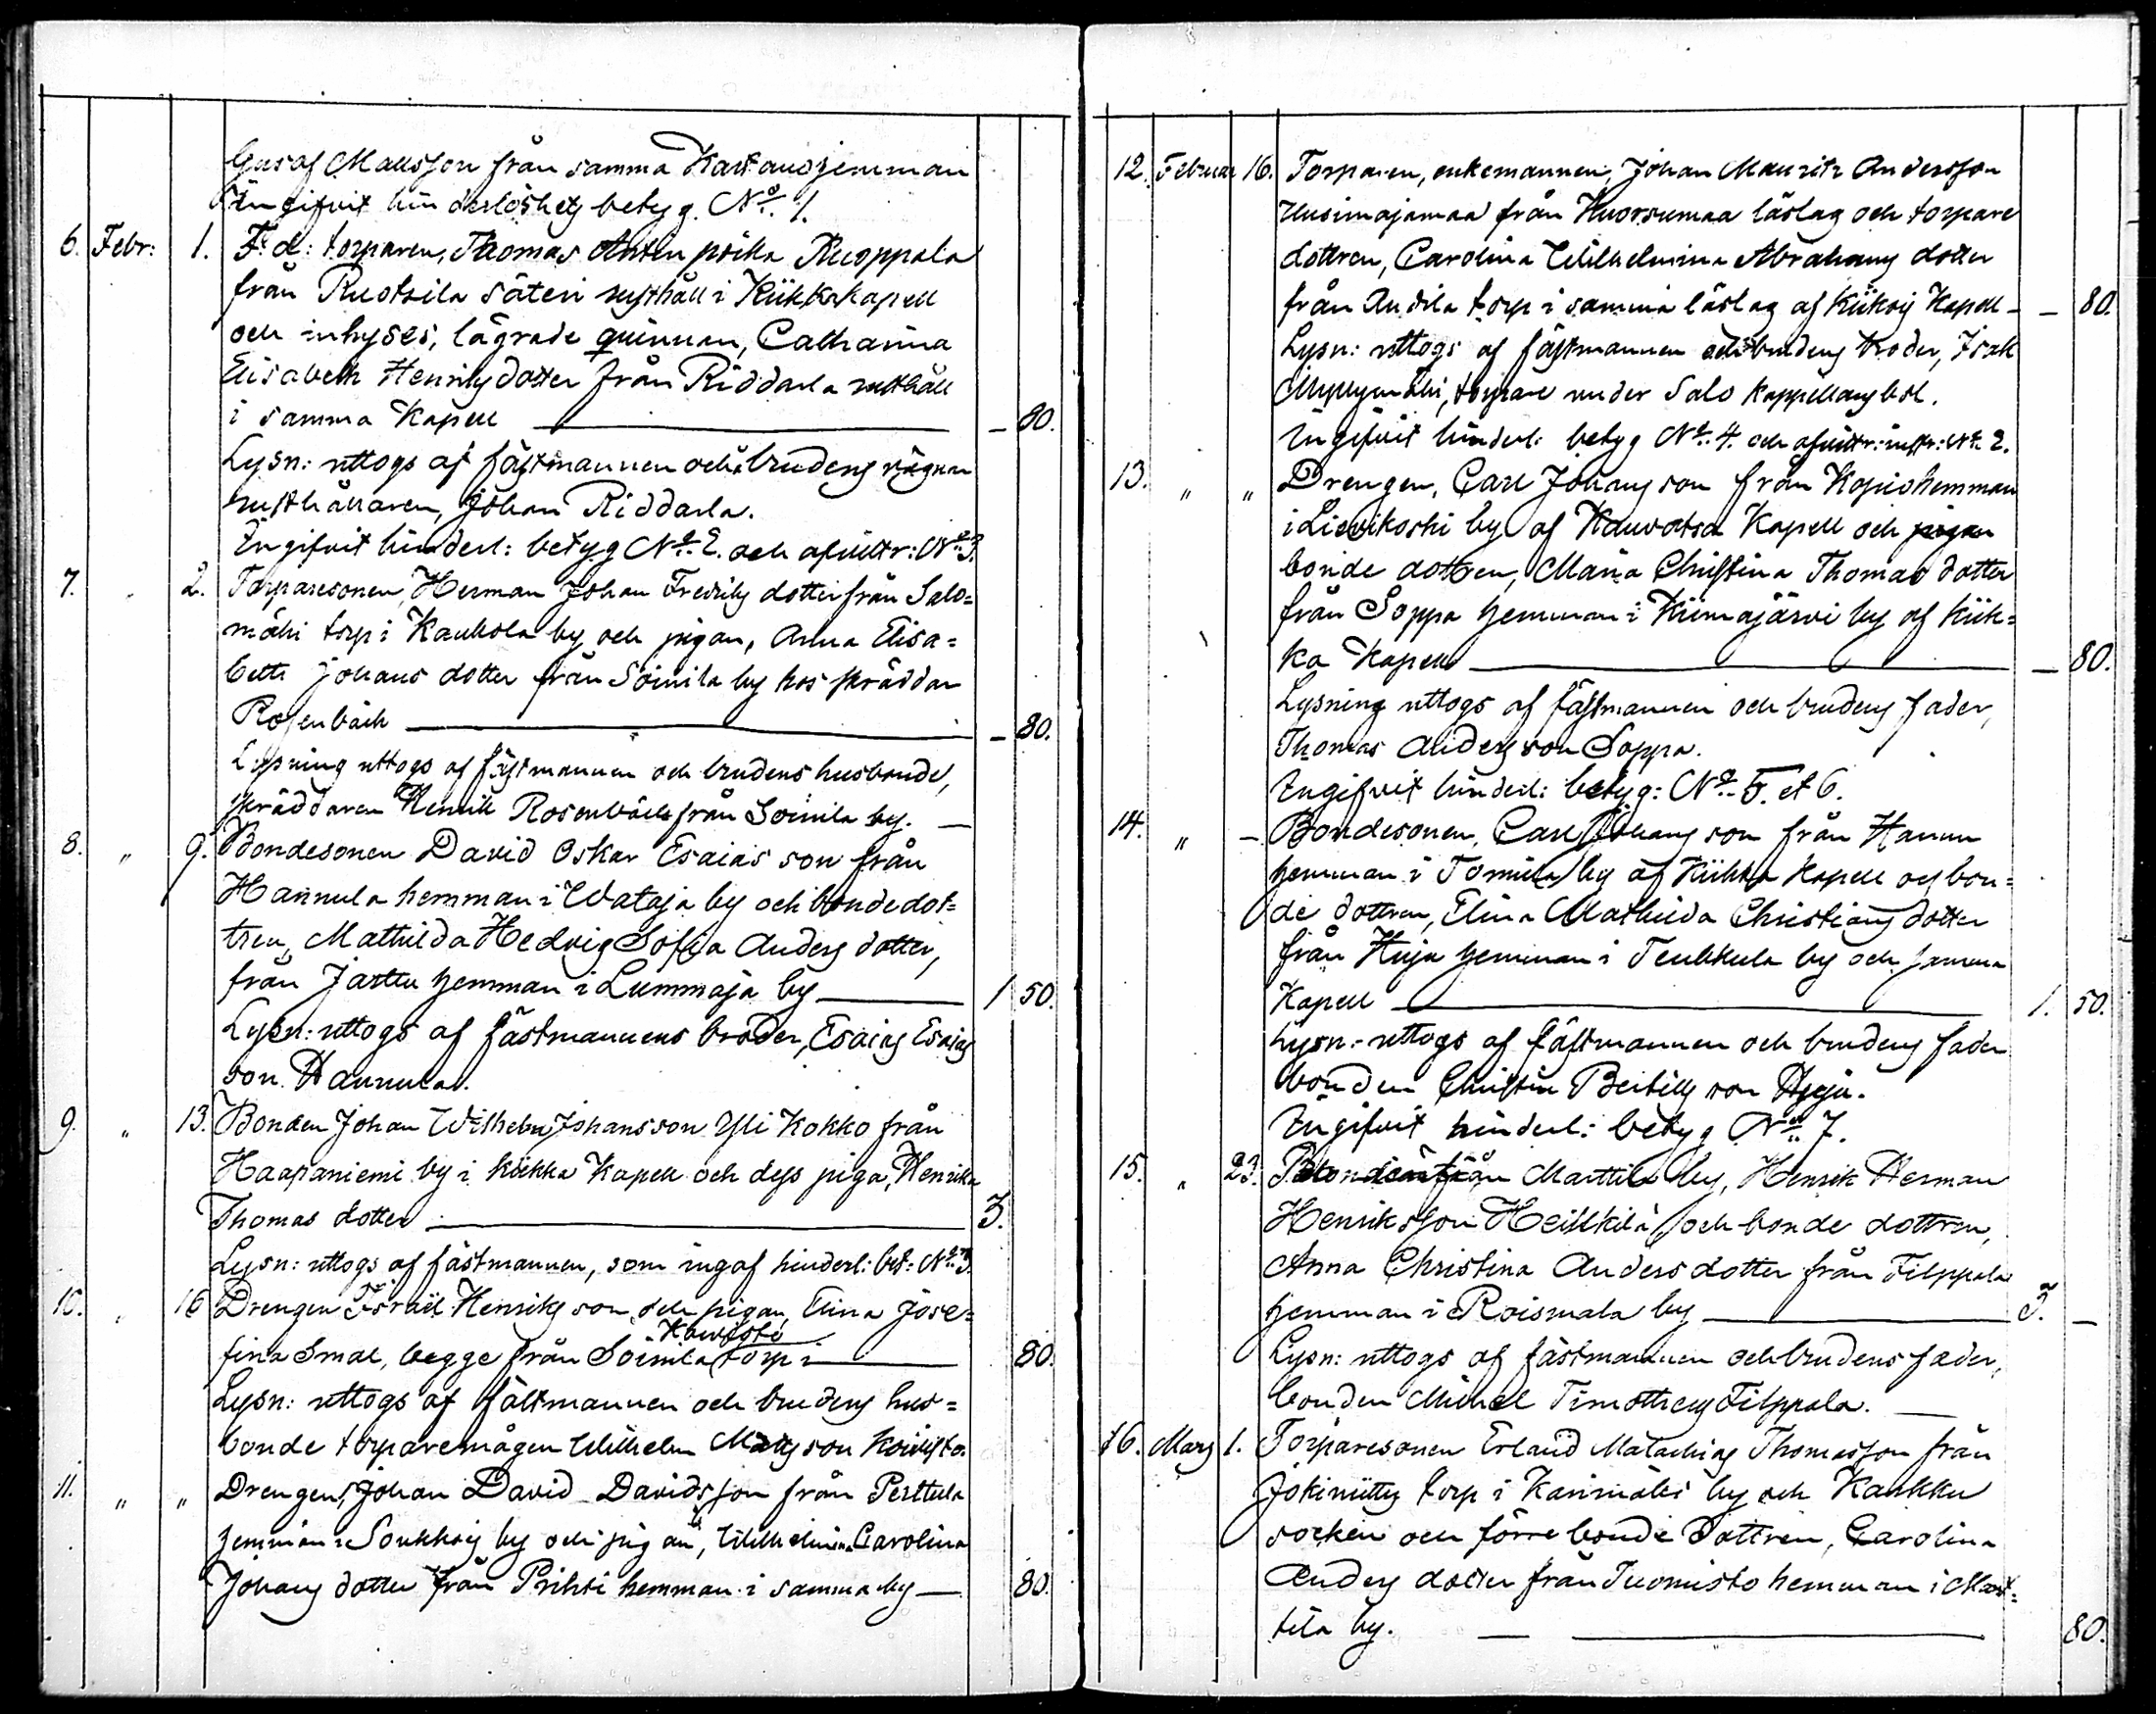 Gustaf Matsson från samma Kartano hemman
Ingifvit hinderlöshets betyg. No. 1.
6. Febr: 1. F. d: torparen, Thomas Anten poika Ruoppala
från Ruotsila säteri rusthåll i Kiikka kapell
och inhyses, lägrade quinnan, Catharina
Elisabeth Henriks dotter från Riddarla rusthåll
i samma Kapell — 80.
Lysn: uttogs af fästmannen och brudens
rusthållaren, Johan Riddarla.
Ingifvit hinderl: betyg No. 2. och afvittr: No. 3.
7. " 2. Torparesonen, Herman Johan Fredriks dotter från Salo=
mäki torp i Kaukola by och pigan, Anna Elisa=
beth Johans dotter från Soinila by hos skräddar
Rosenbäck — 80.
Lysning uttogs af fästmannen och brudens husbonde,
skräddaren Henrik Rosenbäck från Soinila by. —
8. " 9. Bondesonen David Oskar Esaias son från
Hannula hemman i Wataja by och bondedot=
tren, Mathilda Hedvig Sofia Anders dotter,
från Jarttu hemman i Lummaja by — 1 50.
Lysn: uttogs af fästmannens broder, Esaias Esaias
son Hannula.
9. " 13. Bonden Johan Wilhelm Johansson Yli Kokko från
Haapaniemi by i Kiikka Kapell och dess piga, Henrika
Thomas dotter — 3.
Lysn: uttogs af fästmannen, som ingaf hinderl: bet: No 3.
10. " 16 Drengen Israël Henriks son och pigan, Elina Jose=
Koivisto
fina Smal, begge från Soinila torp i — 80.
Lysn: uttogs af fästmannen och brudens hus=
bonde torparemågen Wilhelm Matts son Koivisto.
11. " " Drengen, Johan David Davidsson från Perttula
hemman i Soukko by och pigan, Wilhelmina Carolina
Johans dotter från Prihti hemman i samma by — 80.
12. Februar 16. Torparen, enkemannen, Johan Mauritz Andersson
Uusimajamaa från Kuorsumaa läslag och torpare
dottren, Carolina Wilhelmina Abrahams dotter
från Antila torp i samma läslag af Kiikois Kapell — 80.
Lysn: uttogs af fästmannen och brudens broder, Isak
Myllymäki, torpare under Salo kappellans bol.
Ingifvit hinderl: betyg No. 4. och afvittr: instr: No. 2.
13. " " Drengen, Carl Johans son från Kopio hemman
i Lievikoski by af Kauvatsa Kapell och pigan
bonde dottren, Maria Christina Thomas dotter
från Soppa hemman i Kiimajärvi by af Kiik=
ka Kapell — 80.
Lysning uttogs af fästmannen och brudens fader,
Thomas Anders son Soppa.
Ingifvit hinderl: betyg: No. 5. et 6.
14. " — Bondesonen, Carl Johans son från Hannu
hemman i Tomula by af Kiikka Kapell och bon=
de dottren, Elina Mathilda Christians dotter
från Huju hemman i Teukkula by och samma
Kapell — 1. 50.
Lysn: uttogs af fästmannen och brudens fader
bonden Christian Bertills son Huju.
Ingifvit hinderl: betyg No 7.
15. " 23. Marttila by, Henrik Herman
Henriksson Heikkilä, och bonde dottren,
Anna Christina Anders dotter från Filppula
hemman i Roismala by — 3. —
Lysn: uttogs af fästmannen och brudens fader,
bonden Michel Timotheus Filppula. —
16. Mars 1. Torparesonen Erland Malachias Thomasson från
Jokiniitty torp i Karimäki by och Karkku
socken och förre bonde dottren, Carolina
Anders dotter från Tuomisto hemman i Mart=
tila by. — 80.